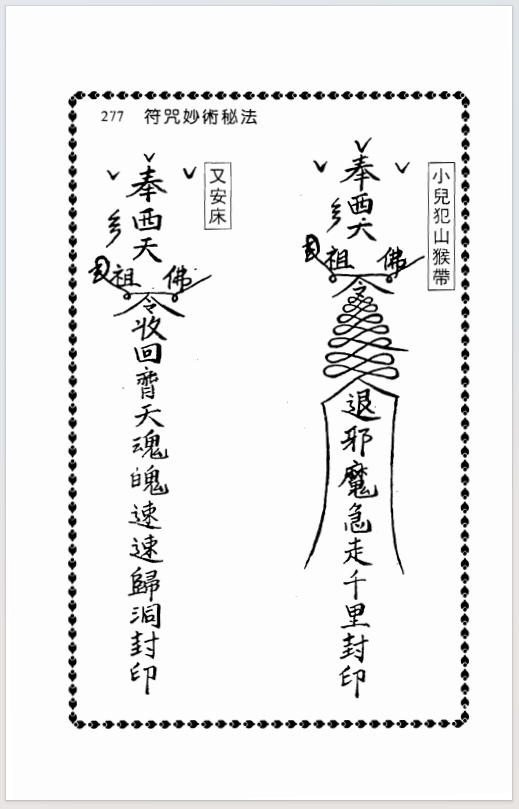 277 符咒妙術秘法
小兒犯山猴帶
奉西天
佛
祖
令
退邪魔急走千里封印
又安床
奉西天
佛
祖
令
收回齊天魂魄速速歸洞封印